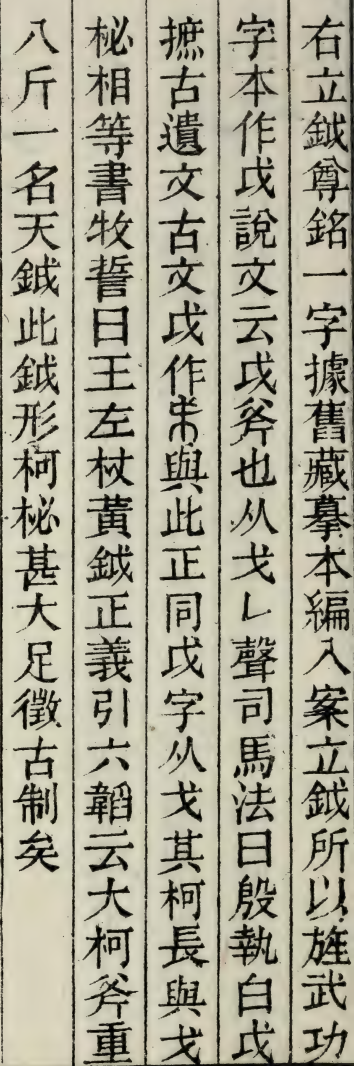 右立鉞尊銘一字據舊藏摹本編入案立鉞所以旌武功
字本作戉說文云戉斧也从戈𠄌聲司馬法曰殷執白戉
摭古遺文古文戉作𣎵與此正同戉字从戈其柯長與戈
柲相等書牧誓曰王左杖黃鉞正義引六韜云大柯斧重
八斤一名天鉞此鉞形柯柲甚大足徵古制矣